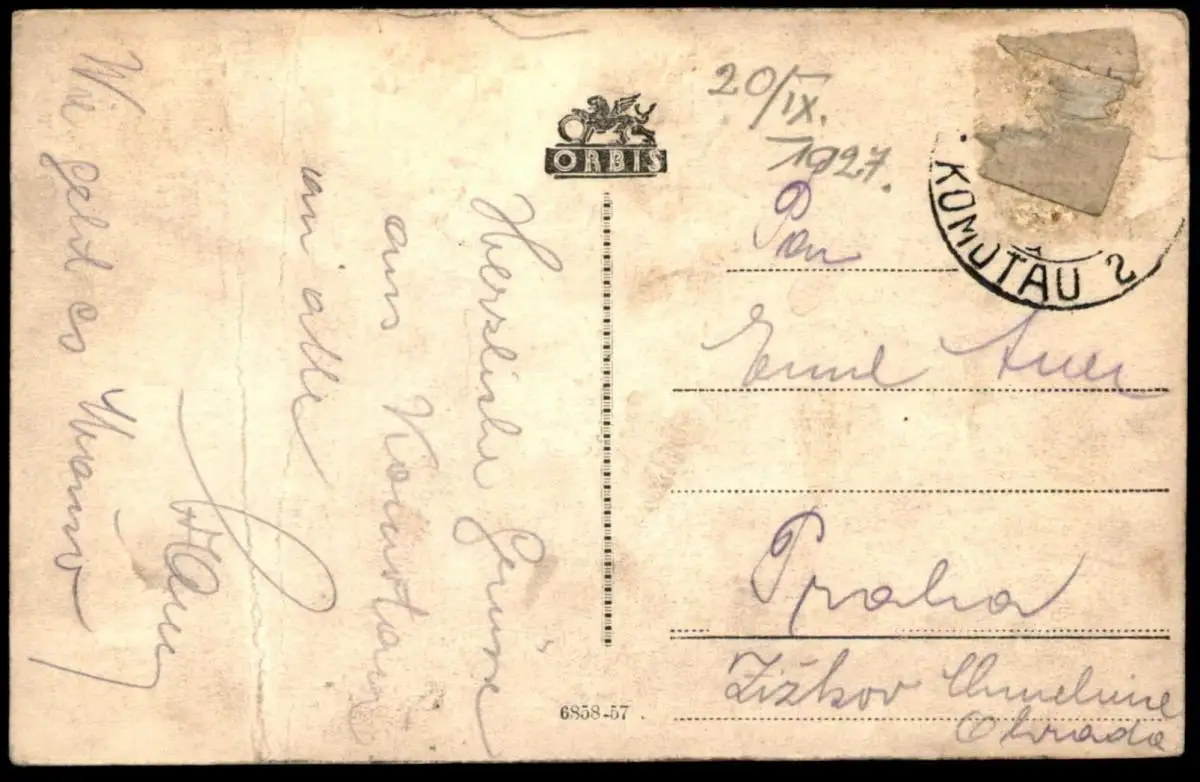 20/IX.
1927.
ORBIS
KOMOTAU 2
Pan
Emil Auer
Praha
Žižkov
Ohrada
Herzliche Grüsse
aus Komotau
an alle
Wie geht es
6858-57